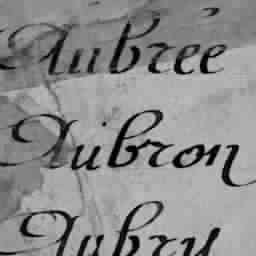 Aubrée
Aubron
Aubry